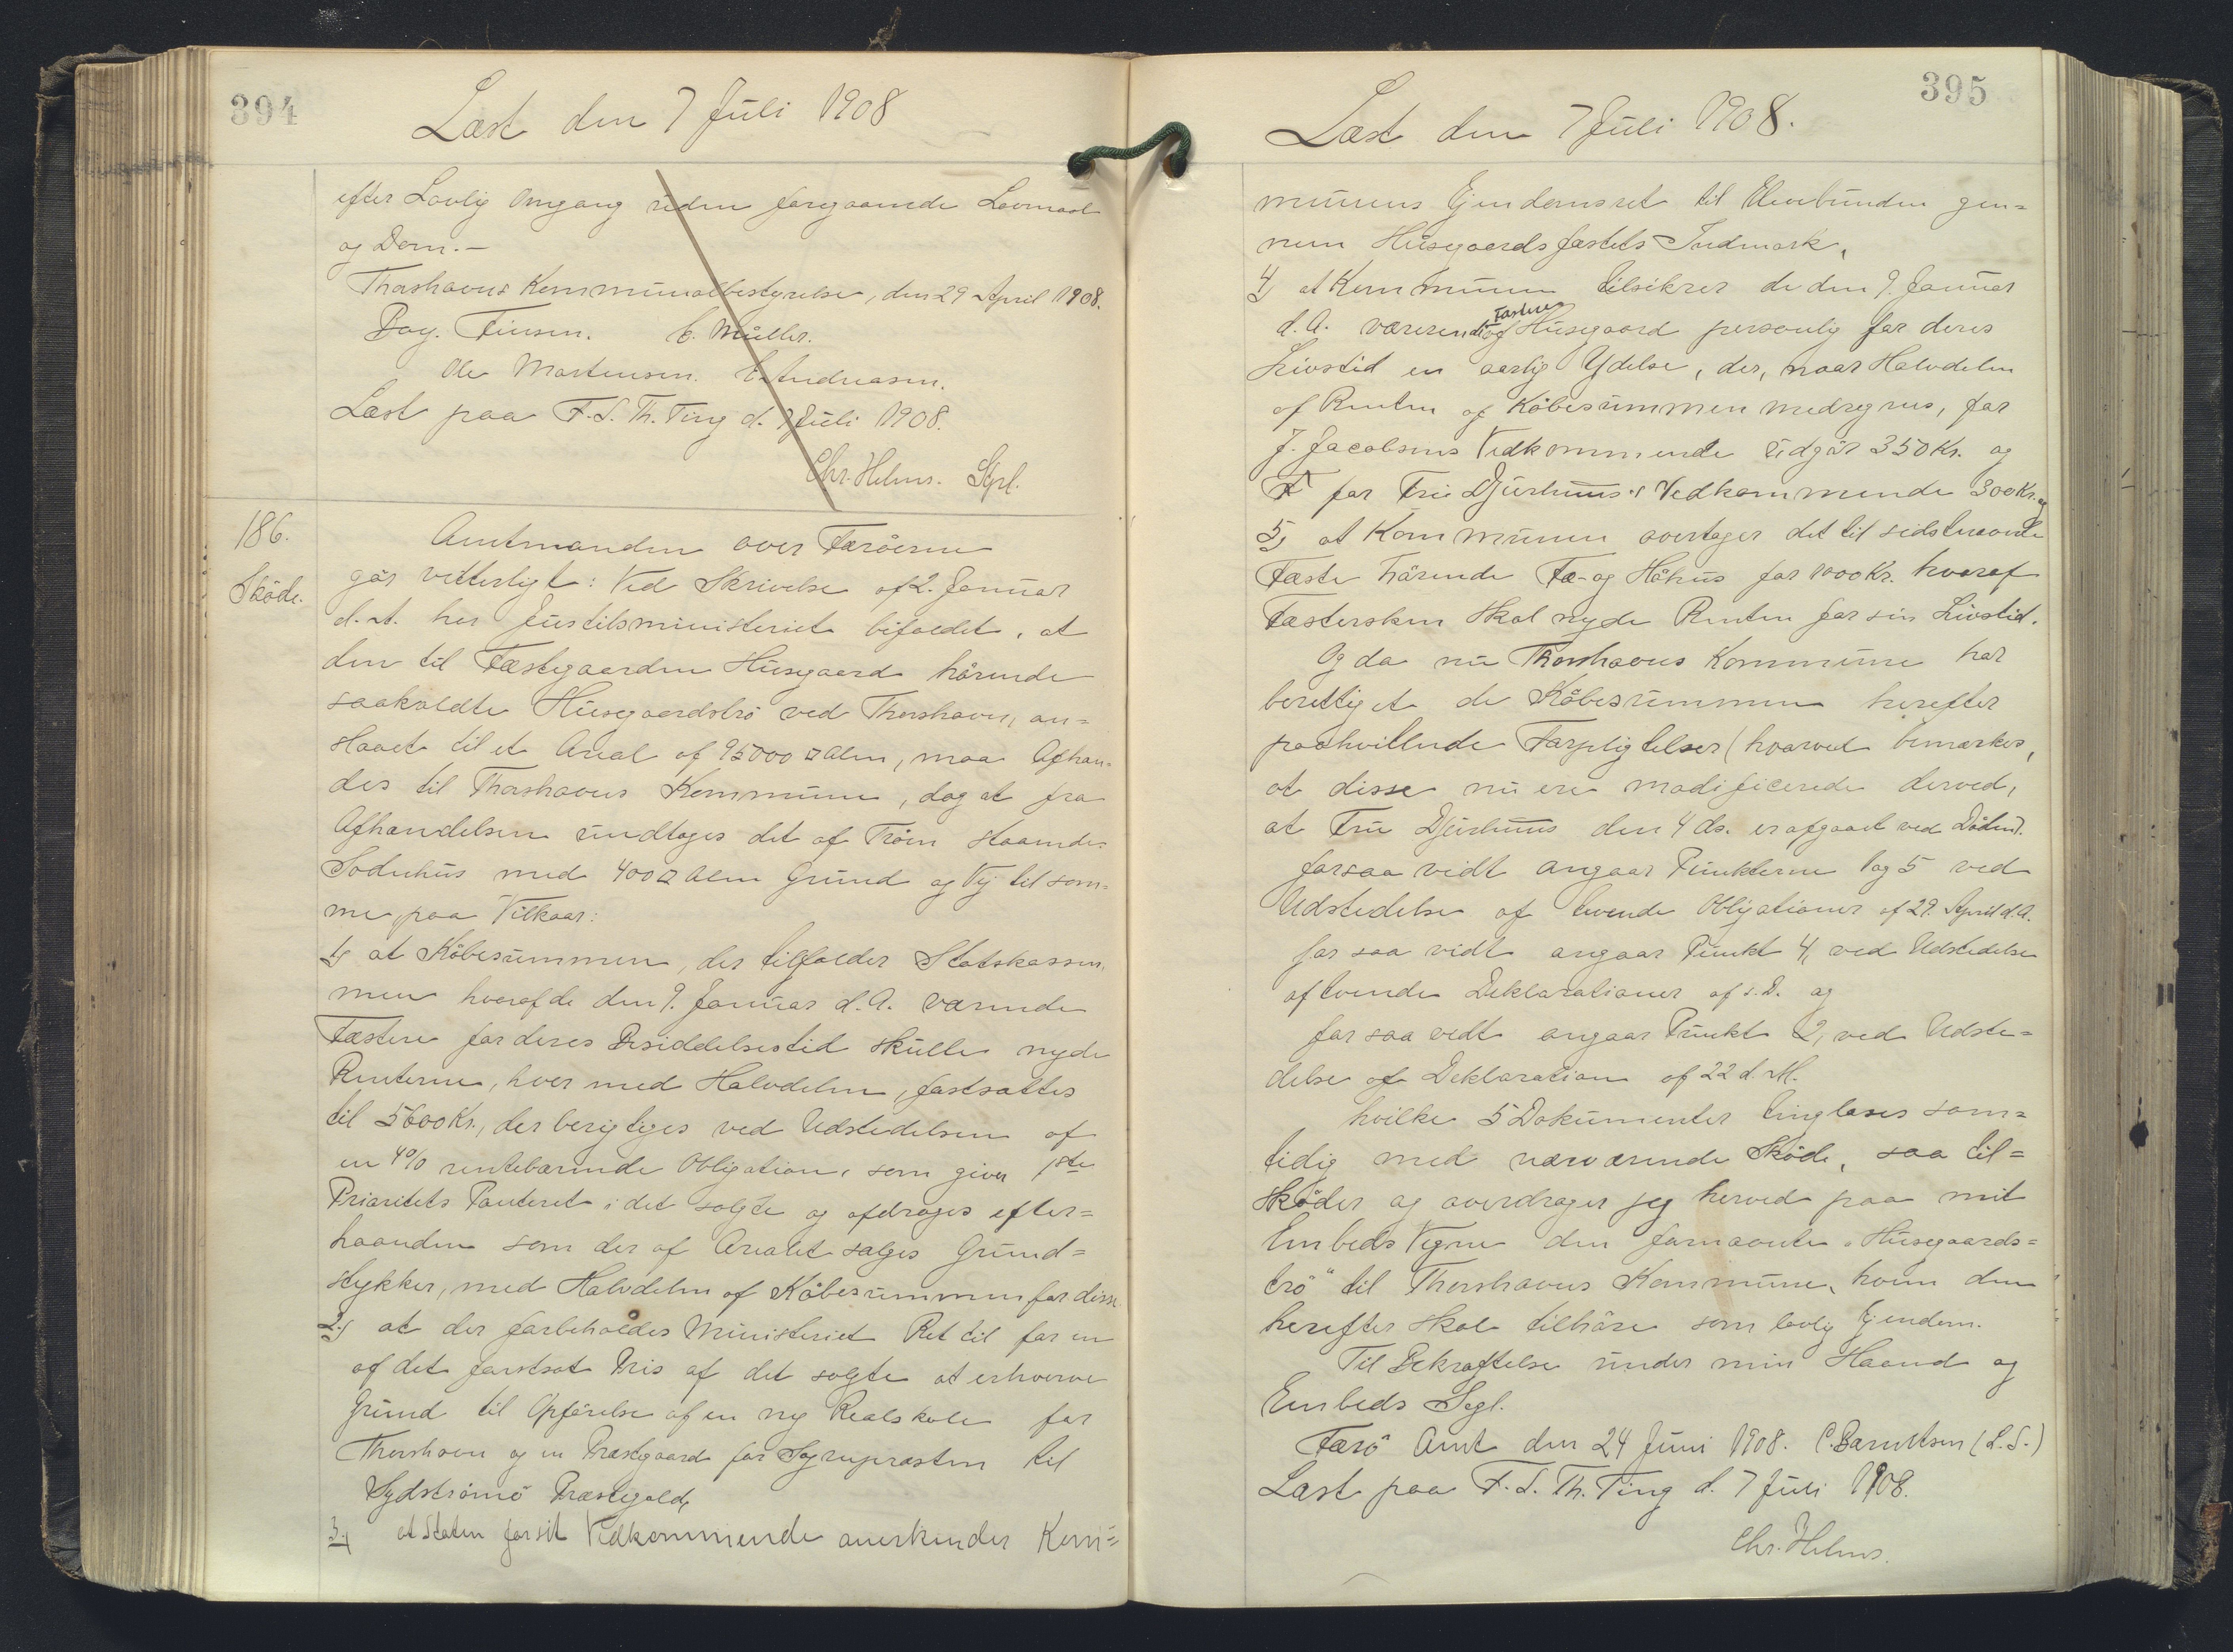 394
Læst den 7 Juli 1908
efter Lovlig Omgang uden foregaaende Lovmaal
og Dom.-
Thorshavns Kommunalbestyrelse, den 29 April 1908.
Poy. Finsen. C. Müller.
Ole Mortensen. E. Andreasen.
Læst paa F. S. Th. Ting d. 7 Juli 1908.
Chr. Helms. Stpl.
186.
Sköde.
Amtmanden over Færöerne
gör vitterligt: Ved Skrivelse af 2. Januar
d. A. har Justitsministeriet bifaldet, at
den til Fæstegaarden Husegaard hörende
saakaldte Husegaardströ ved Thorshavn, an-
slaaet til et Areal af 95000 □ Alen, maa Afhæn-
des til Thorshavns Kommune, dog at fra
Afhændelsen undtages det af Tröen staaende
Sodnhus med 400 □ Alen Grund og Vej til sam-
me, paa Vilkaar:
1) at Köbesummen, der tilfalder Statskassen,
men hvoraf de den 9. Januar d. A. værende
Fæstere for deres Besiddelsestid skulle nyde
Renterne, hver med Halvdelen, fastsættes
til 5600 Kr., der berigtiges ved Udstedelsen af
en 4% rentebærende Obligation, som giver 1ste
Prioritets Panteret i det solgte og afdrages efter=
haanden som der af Arealet sælges Grund=
stykker, med Halvdelen af Köbesummen for disse.
2) at der forbeholdes Ministeriet Ret til for en
af det fastsat Pris af det solgte at erhverve
Grund til Opförelse af en ny Realskole for
Thorshavn og en Præstegaard for Sognepræsten til
Sydströmö Præstegæld,
3) at Staten for sit Vedkommende anerkender Kom=
395
Læst den 7 Juli 1908.
munens Ejendomsret til Elvebunden gen=
nem Husegaardsfæstets Indmark,
4) at Kommunen tilsikrer de den 9. Januar
Fæstere
d. A. værerende af Husegaard personlig for deres
Livstid en aarlig Ydelse, der, naar Halvdelen
af Renten af Köbesummen medregnes, for
J. Jacobsens Vedkommende udgör 350 Kr. og
for Fru Djurhuus's Vedkommende 300 Kr. og
5) at Kommunen overtager det til sidstnævnte
Fæste hörende Fæ- og Höhus for 1000 Kr. hvoraf
Fæstersken skal nyde Renten for sin Livstid.
Og da nu Thorshavns Kommune har
berettiget de Köbesummen herefter
paahvillende Forpligtelser (hvorved bemærkes,
at disse nu ere modificerede derved,
at Fru Djurhuus den 4 ds. er afgaaet ved Döden).
forsaa vidt angaar Punkterne 1 og 5 ved
Udstedelse af tvende Obligationer af 29. April d. A.
for saa vidt angaar Punkt 4, ved Udstedelse
af tvende Deklarationer af s. D. og
for saa vidt angaar Punkt 2, ved Udste=
delse af Deklaration af 22 d. M.
hvilke 5 Dokumenter tinglæses sam=
tidig med nærværende Sköde, saa til=
sköder og overdrager jeg herved paa mit
Embeds Vegne den fornævnte „Husegaards=
trö" til Thorshavns Kommune, hvem den
herefter skal tilhöre som lovlig Ejendom.
Til Bekræftelse under min Haand og
Embeds Segl.
Færö Amt den 24 Juni 1908. C. Bærentsen (L. S.)
Læst paa F. S. Th. Ting d. 7 Juli 1908.
Chr. Helms.